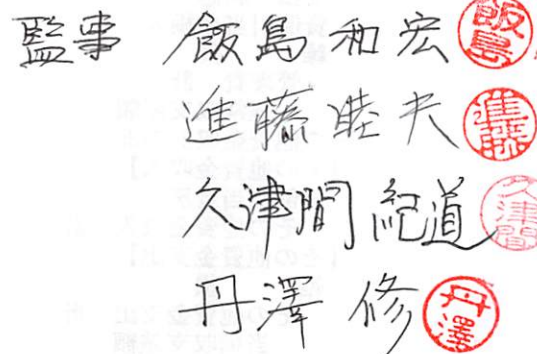 監事 飯島和宏 飯島
進藤睦夫 進藤
久津間紀道 久津間
丹澤修 丹澤